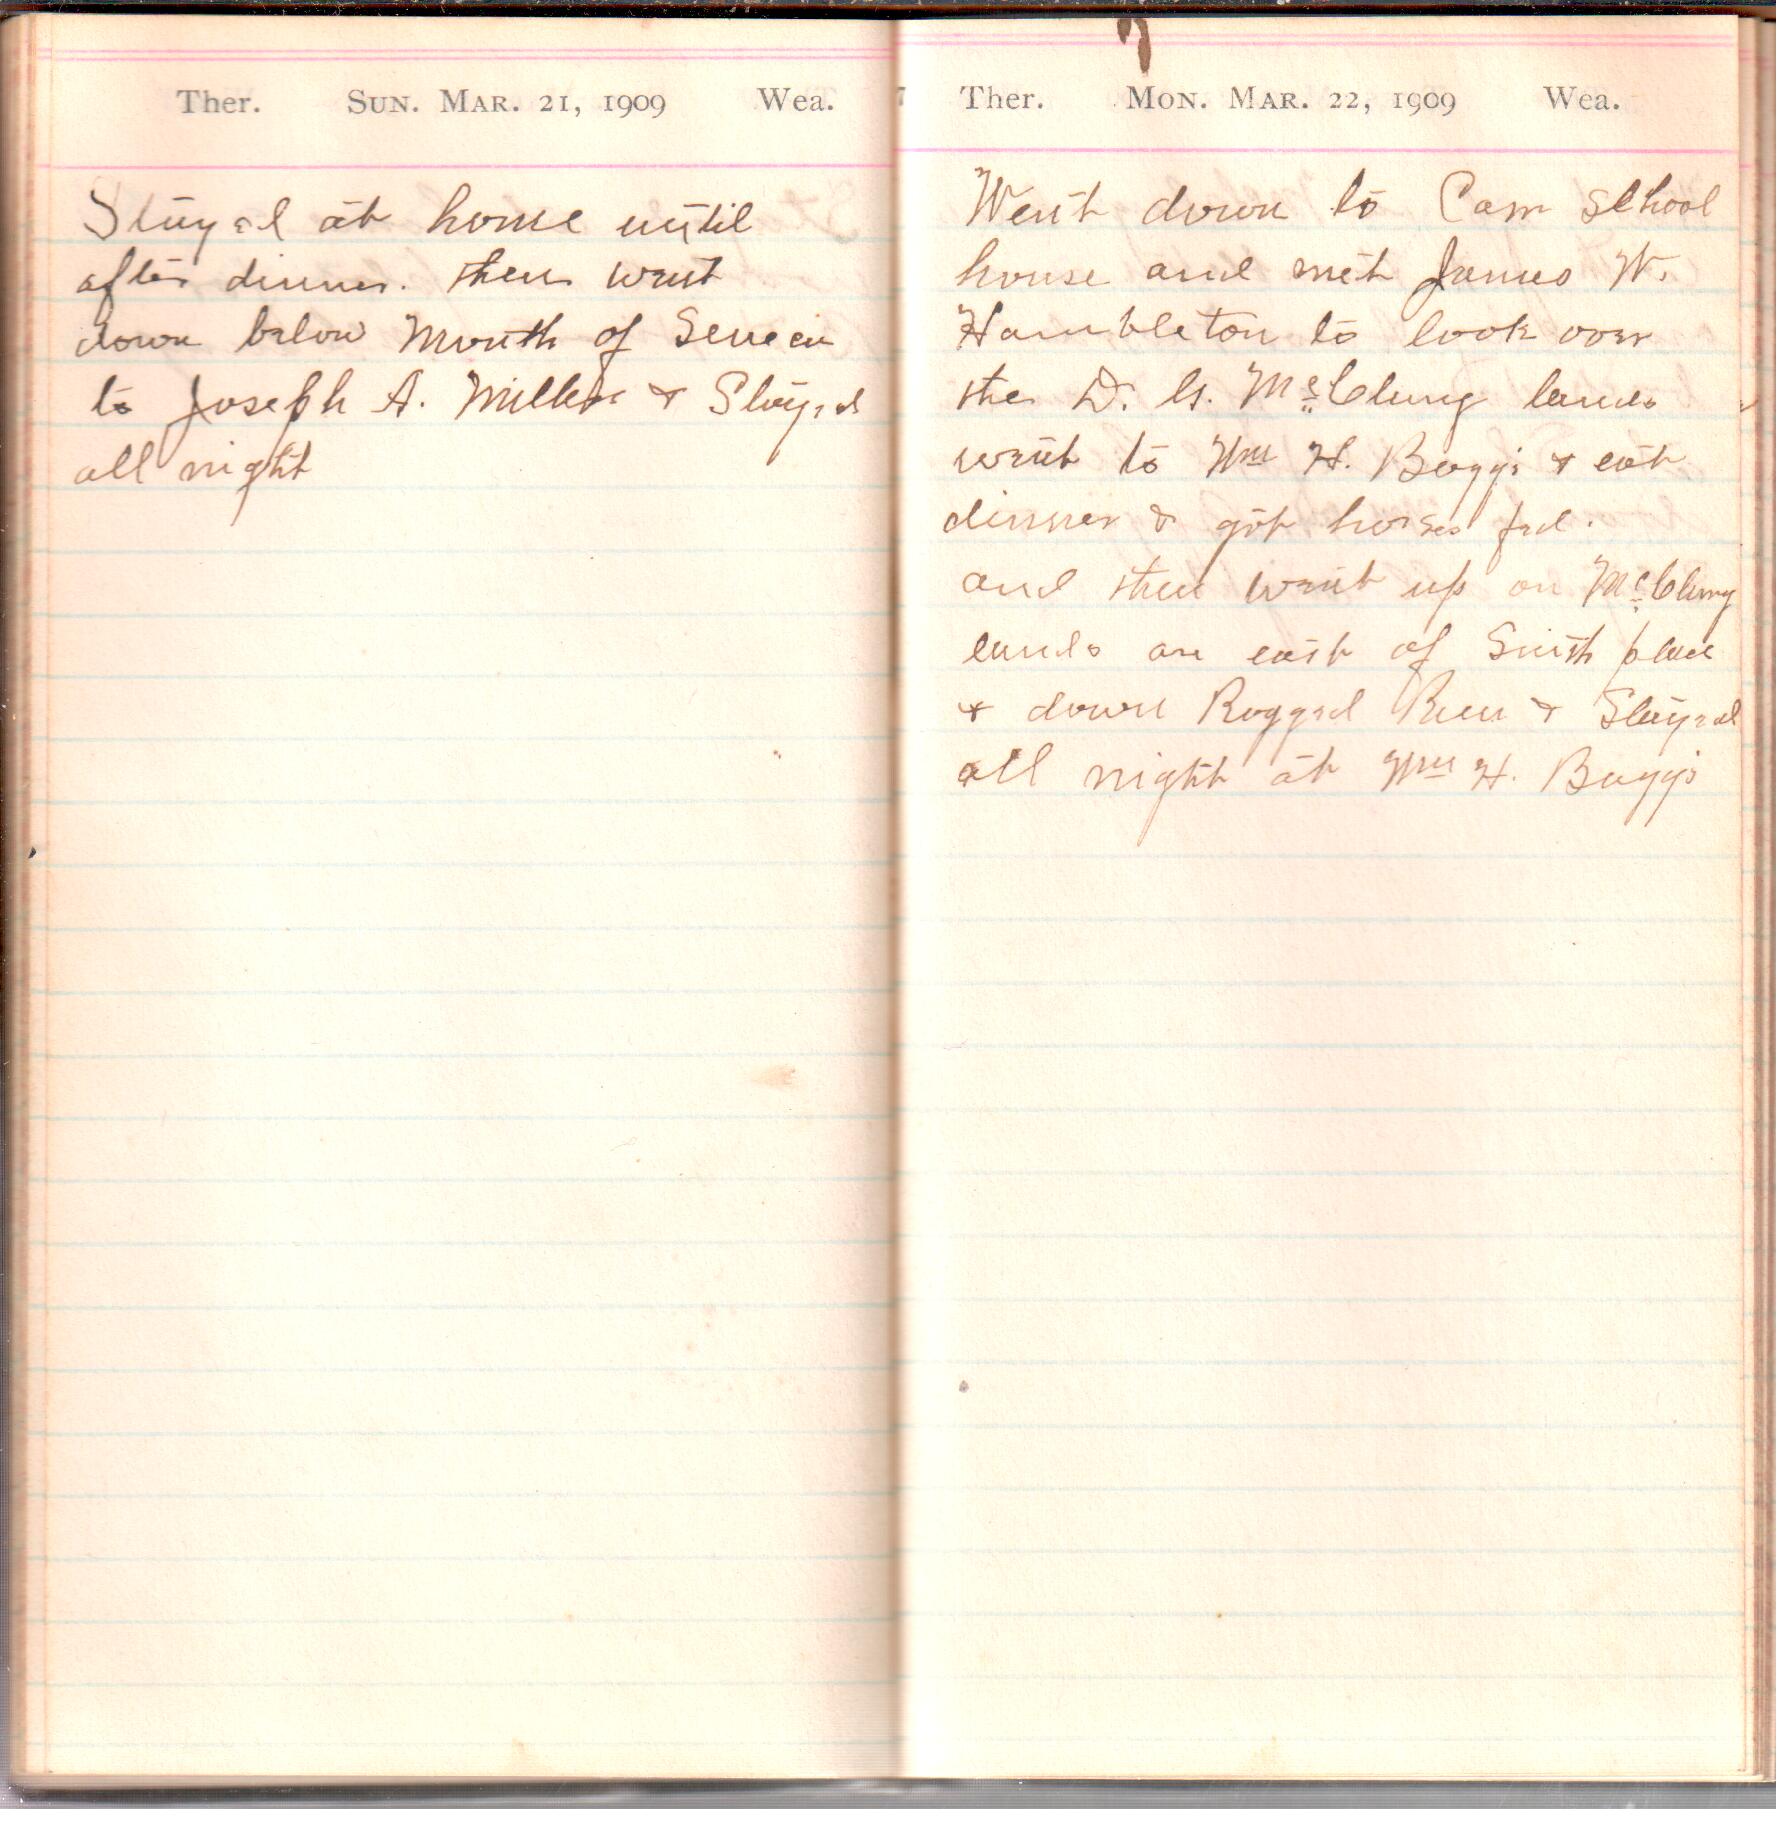 Ther. SUN. MAR. 21, 1909 Wea.
Stayed at home until
after dinner. then went
down below Mouth of Seneca
to Joseph A. Millers & Stayed
all night
Ther. MON. MAR. 22, 1909 Wea.
Went down to Cam School
house and met James W.
Hambleton to look over
the D. G. McClung lands
went to Wm H. Boggs & eat
dinner & got horses fed.
and then went up on McClung
lands on east of Smith place
& down Rugged Run & Stayed
all night at Wm H. Boggs